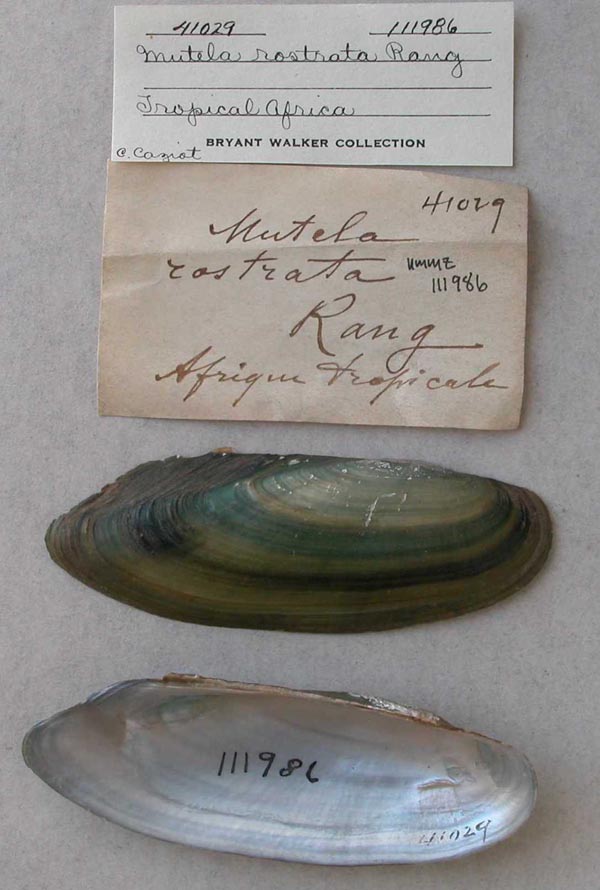 41029 111986
Mutela rostrata Rang
Tropical Africa
BRYANT WALKER COLLECTION
C. Caziot
41029
Mutela
rostrata ummz
111986
Rang
Afrique tropicale
111986
41029